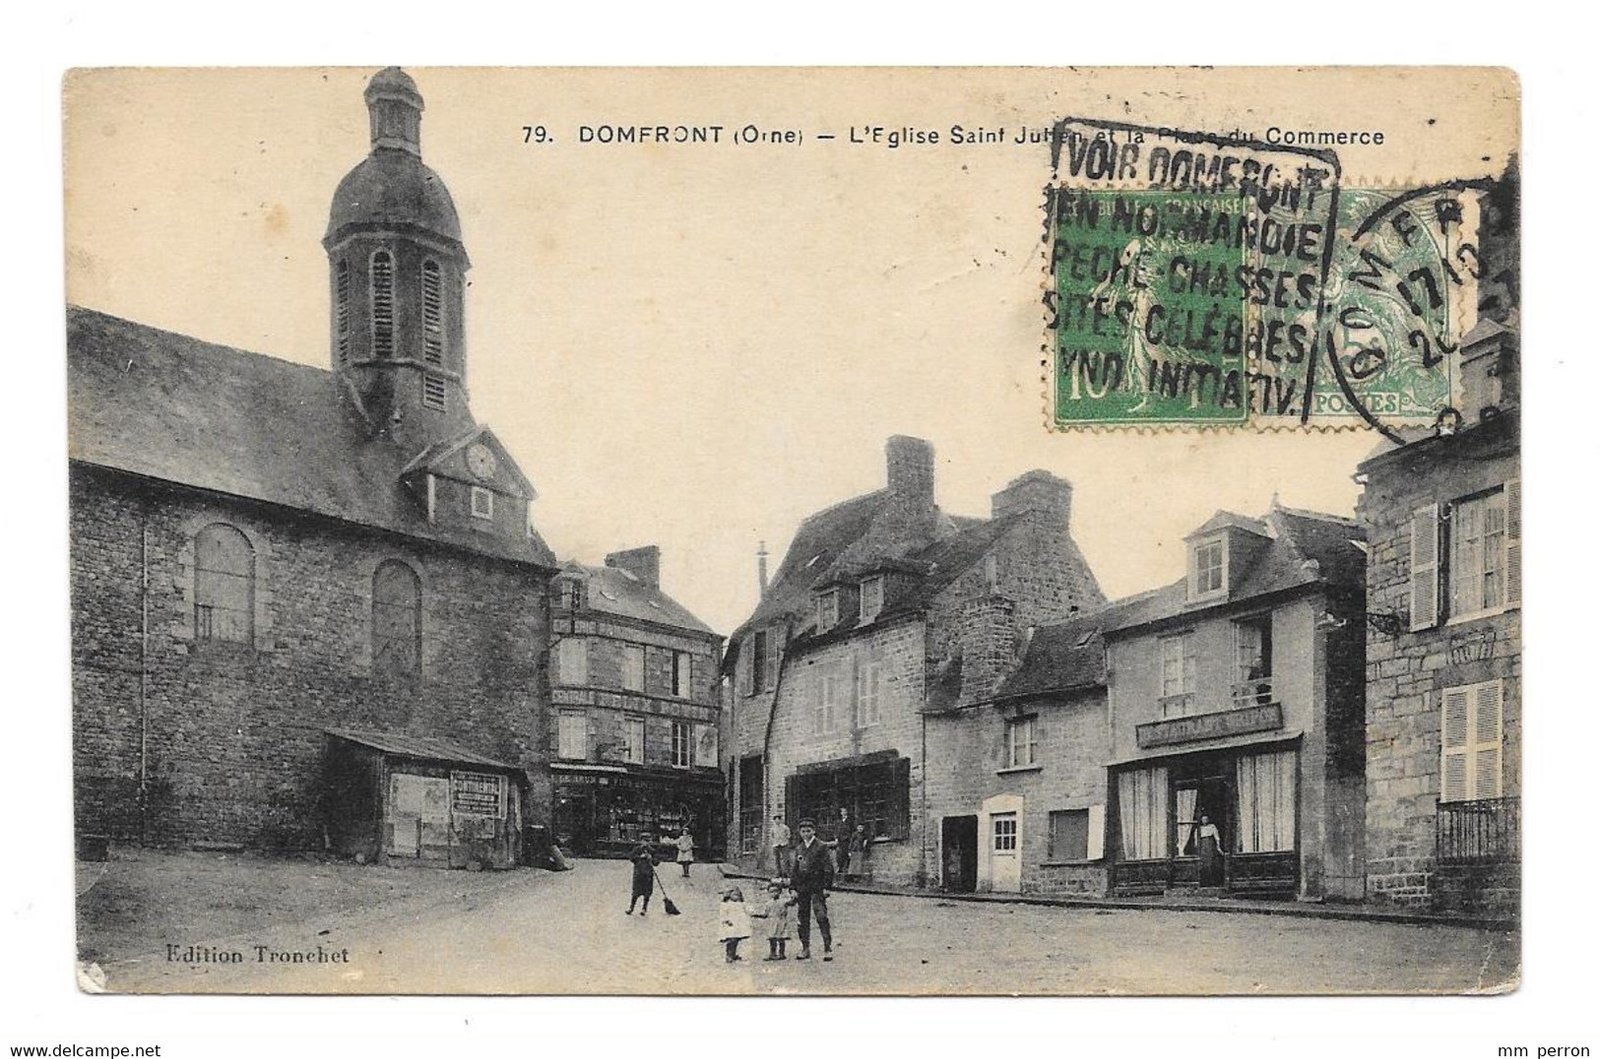 79. DOMFRONT (Orne) — L'Eglise Saint Julien et la Place du Commerce
VOIR DOMFRONT
EN NORMANDIE
PECHE-CHASSES
SITES CÉLÈBRES
YND. INITIATIV.
FRANÇAISE
10
5
POSTES
DOMFR
17 10
CONTINENTAL
Edition Tronchet
www.delcampe.net
mm_perron